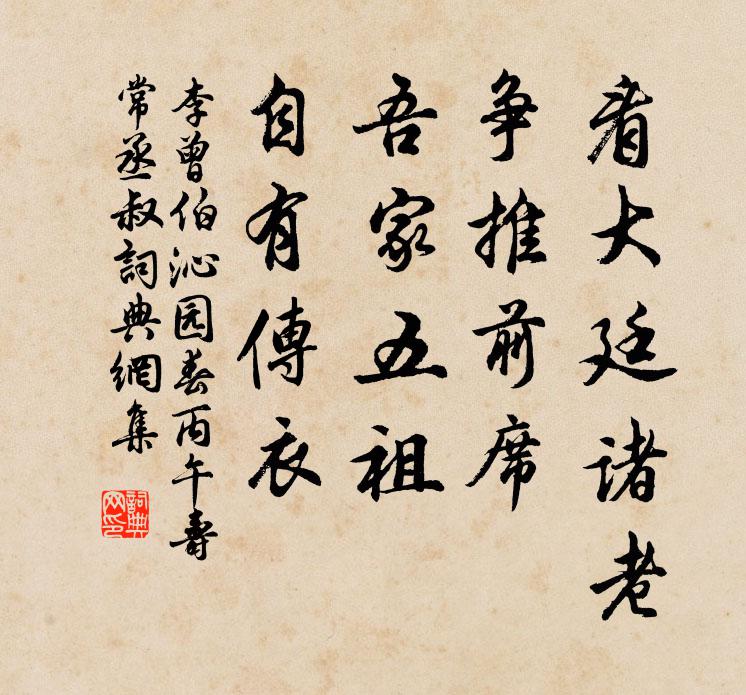 看大廷诸老
争推前席
吾家五祖
自有傳衣
李曾伯沁园春丙午寿
常丞叔詞典網集
詞典网印